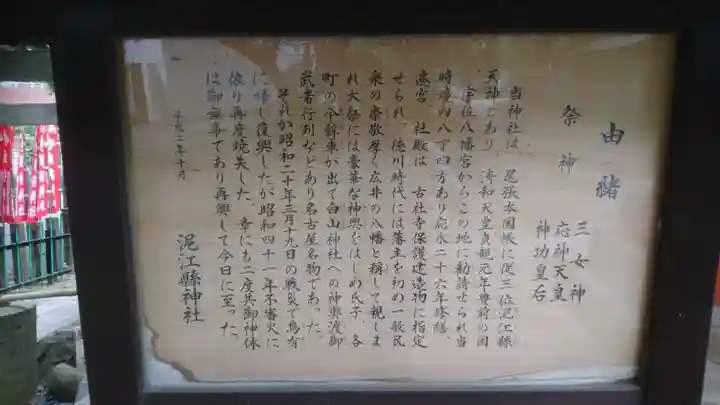 由緒
祭神 三女神
応神天皇
神功皇后
当神社は、尾張本国帳に従三位泥江縣
天神とあり、清和天皇貞観元年豊前の国
宇佐八幡宮からこの地に勧請せられ当
時境内八丁四方あり応永二十六年修繕、
遷宮、社殿は、古社寺保護建造物に指定
せられ、徳川時代には藩主を初め一般民
衆の崇敬厚く広井の八幡と称して親しま
れ大祭には豪華な神輿をはじめ氏子、各
町の傘鉾車が出て白山神社への神輿渡御
武者行列などあり名古屋名物であった。
それが昭和二十年三月十九日の戦災で烏有
に帰し復興したが昭和四十一年不審火に
依り再度焼失した、幸にも二度共御神体
は御無事であり再興して今日に至った。
平成二年十月
泥江縣神社